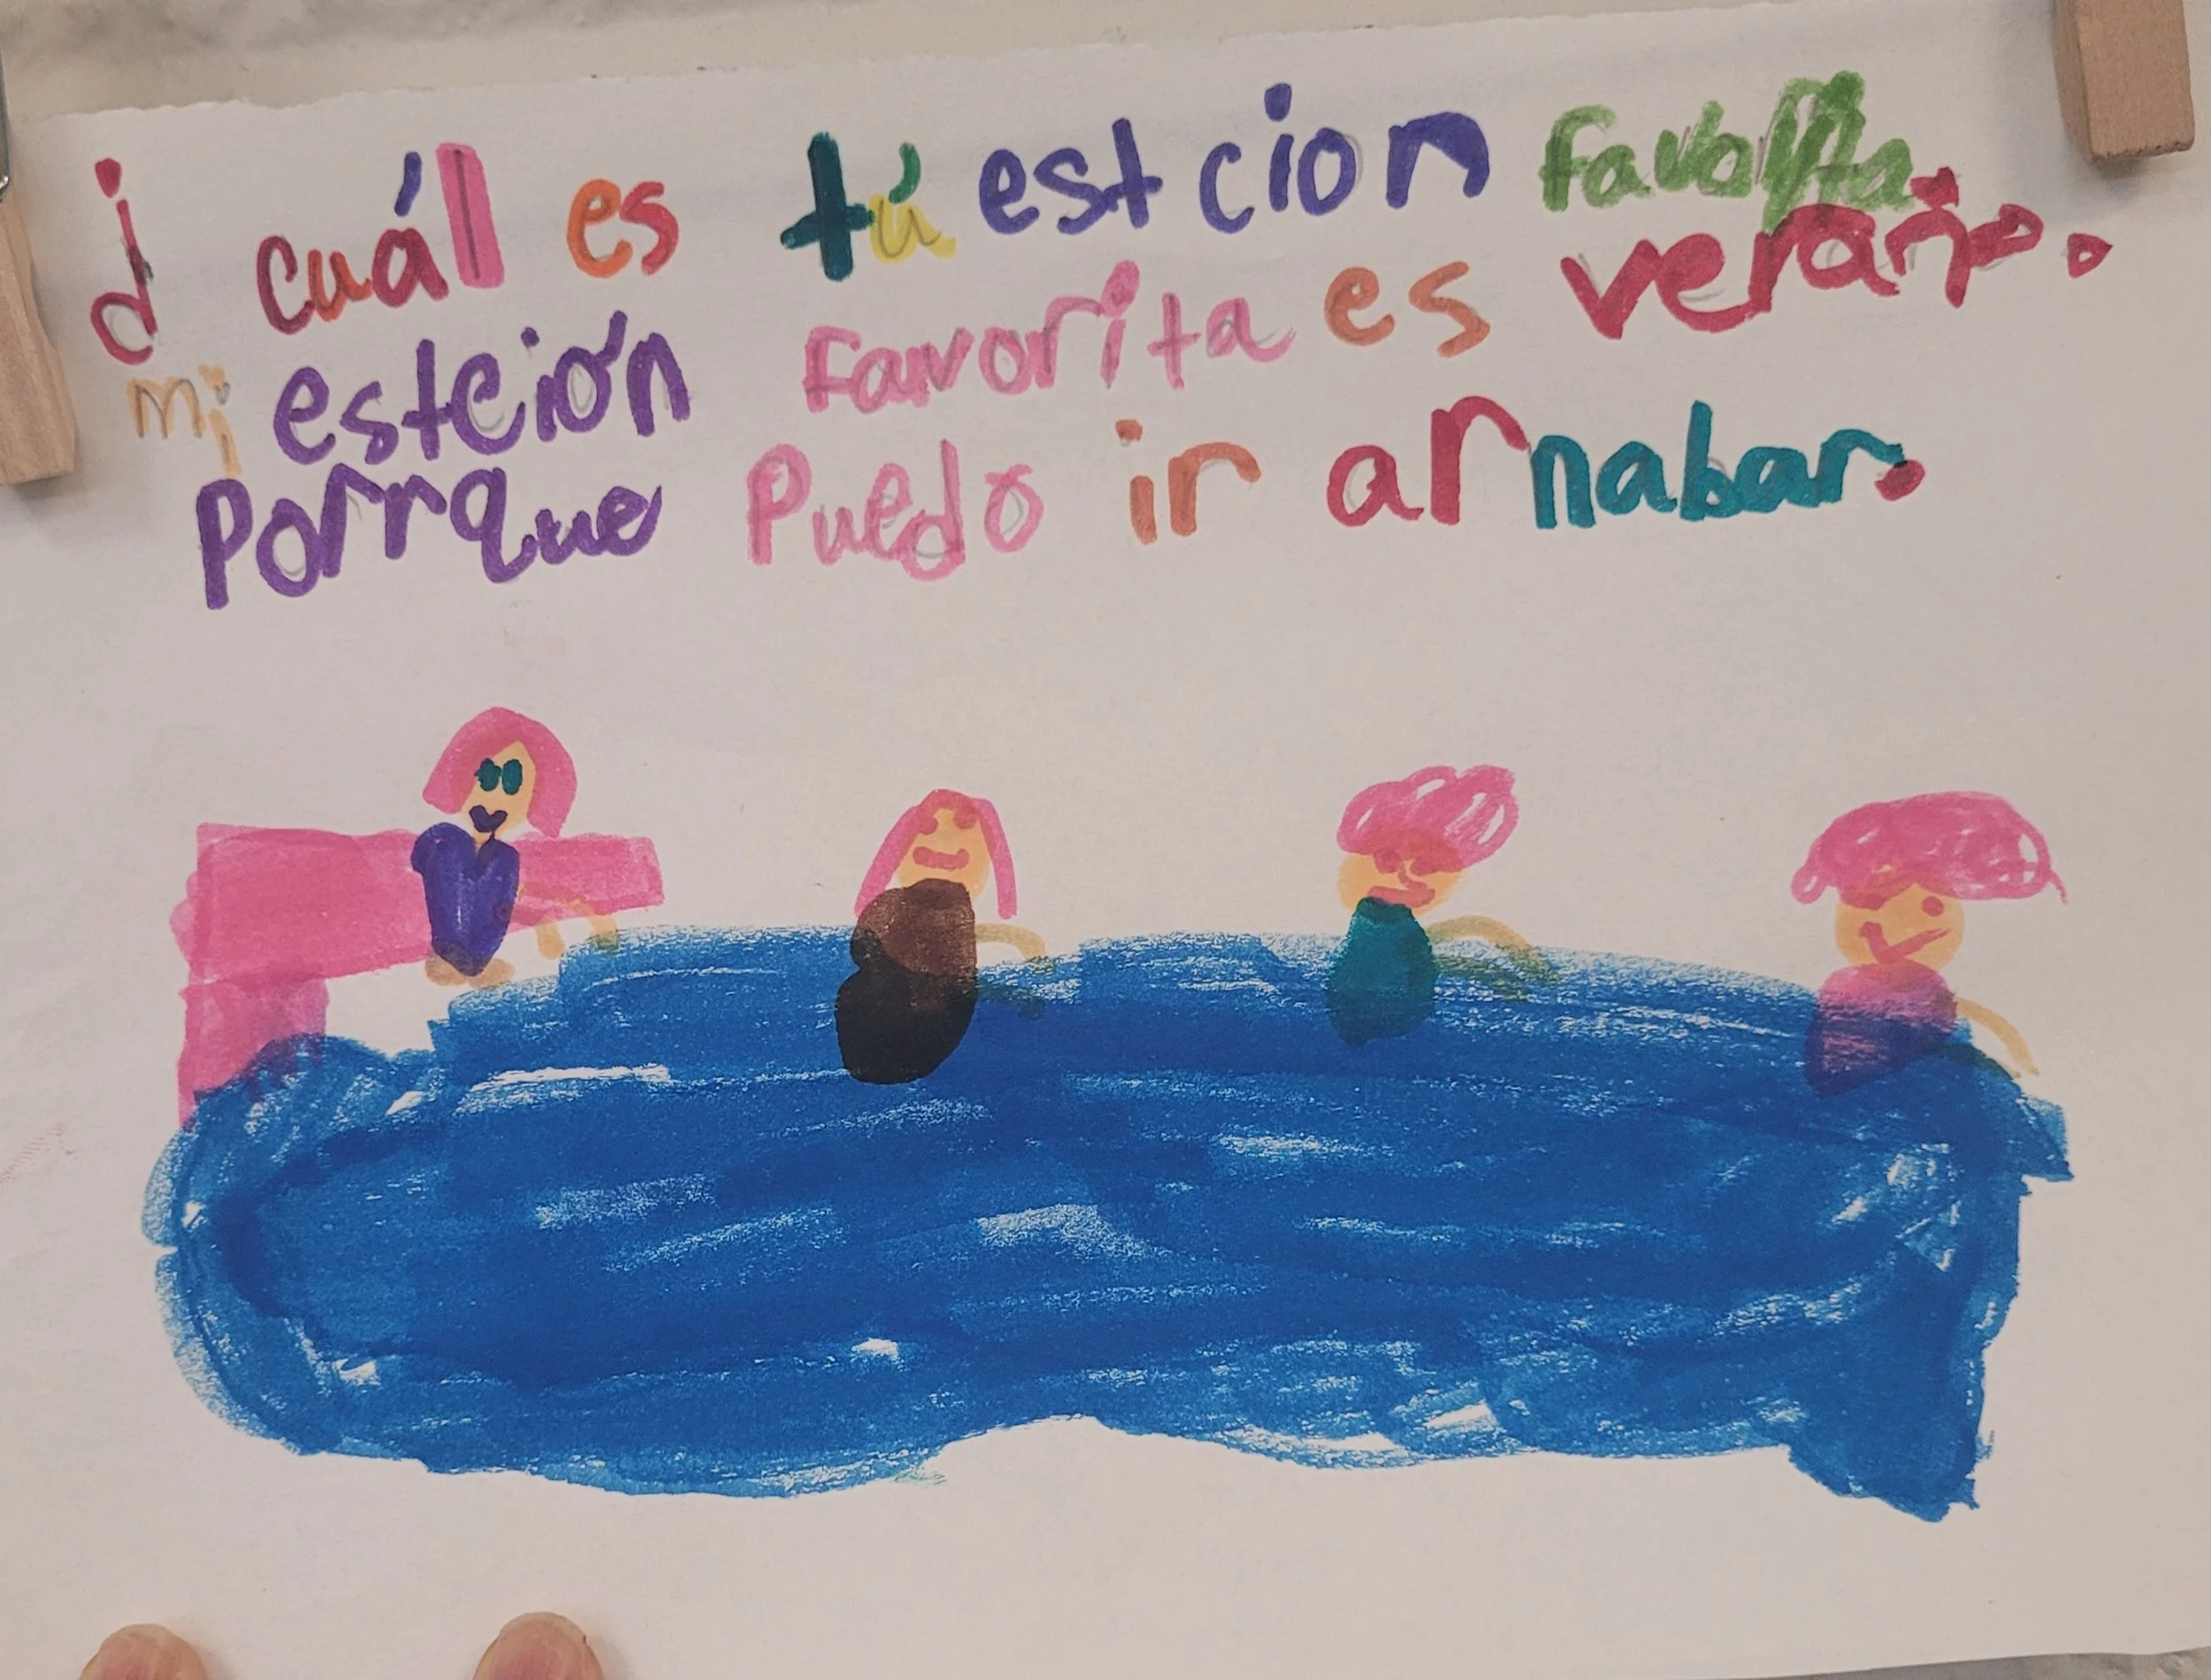 ¿ cuál es tú estcion favorita
mi esteión favorita es verano.
Porrque Puedo ir ar nabar.